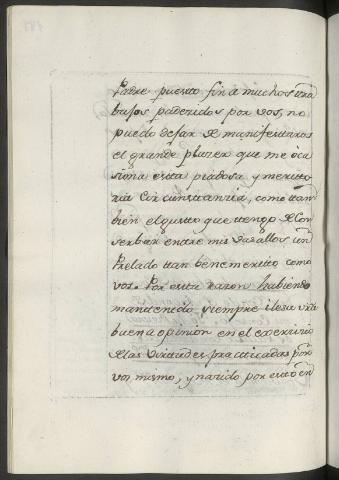 Padre puesto fin á muchos tra
bajos padezidos por vos, no
puedo dejar de manifestaros
el grande plazer que me oca
siona esta piadosa y merito
ria circunstanzia, como tam
bien el gusto que ttengo de con
serbar entre mis vasallos un
Prelado ttan benemeritto como
vos. Por esta razon habiendo
mantenido siempre ilesa vra
buena opinion en el exerzizio
de las virtudes practticadas por
vos mismo, y nazido por esto en